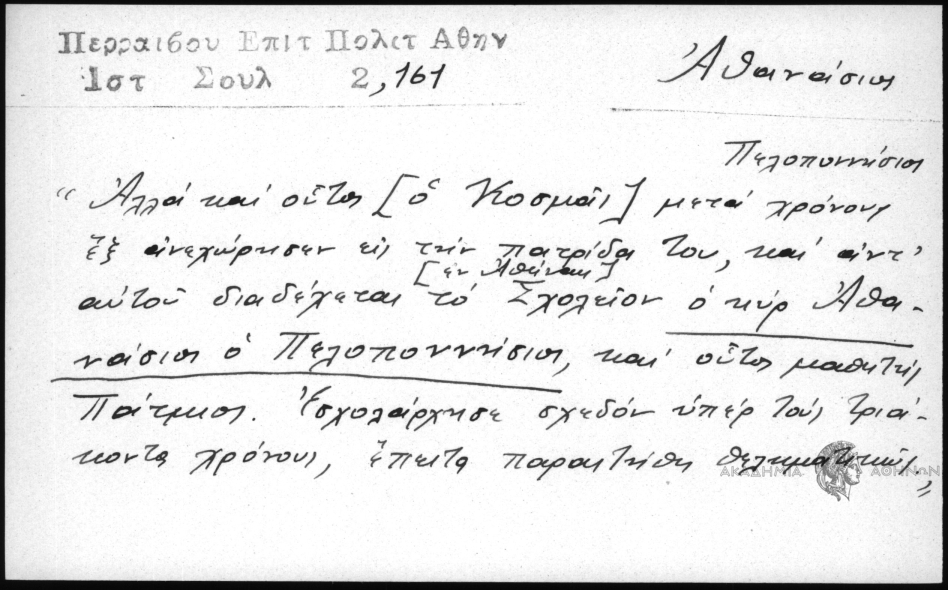 Περραιβου Επιτ Πολιτ Αθην
Ιστ Σουλ 2,161
Ἀθανάσιος
Πελοποννήσιος
"Ἀλλά καί οὗτος [ὁ Κοσμᾶς] μετά χρόνους
ἕξ ἀνεχώρησεν εἰς τήν πατρίδα του, καί ἀντ'
[ἐν Ἀθήναις]
αὐτοῦ διαδέχεται τό Σχολεῖον ὁ κύρ Ἀθα-
νάσιος ὁ Πελοποννήσιος, καί οὗτος μαθητής
Πάτμιος. Ἐσχολάρχησε σχεδόν ὑπέρ τούς τριά-
κοντα χρόνους, ἔπειτα παραιτήθη θεληματικῶς"
ΑΚΑΔΗΜΙΑ ΑΘΗΝΩΝ